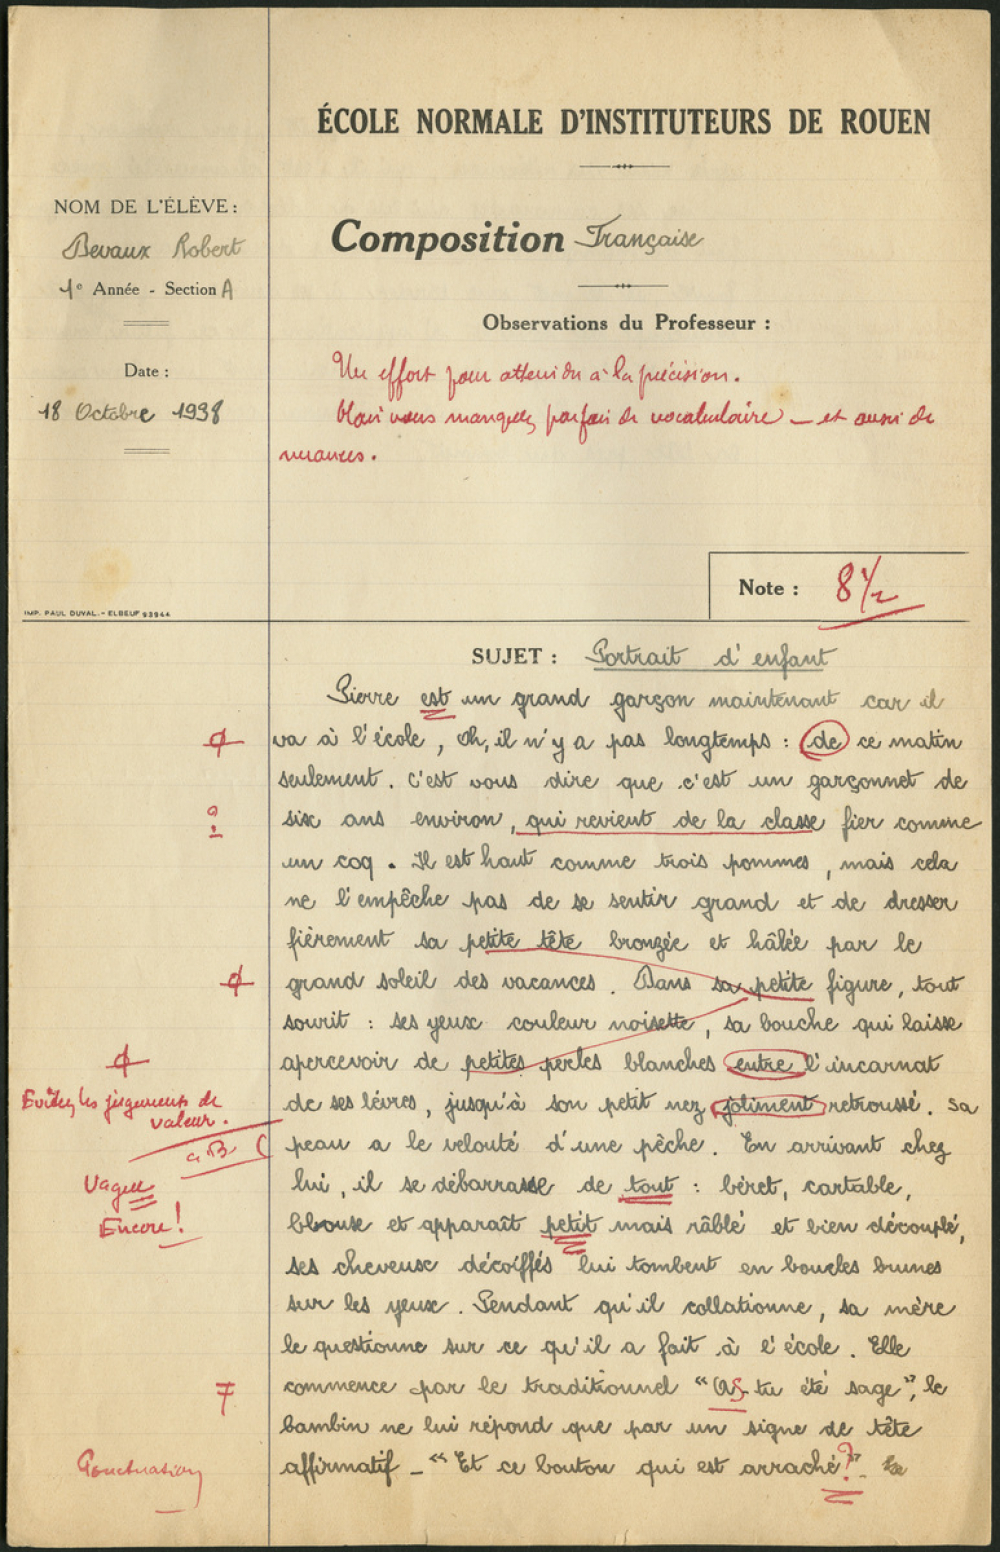 ÉCOLE NORMALE D'INSTITUTEURS DE ROUEN
NOM DE L'ÉLÈVE :
Devaux Robert
1e Année - Section A
Date :
18 Octobre 1938
Composition Française
Observations du Professeur :
Un effort pour atteindre à la précision.
Mais vous manquez parfois de vocabulaire — et aussi de
nuances.
Note : 8 1/2
IMP. PAUL DUVAL. - ELBEUF 93944
SUJET : Portrait d'enfant
Pierre est un grand garçon maintenant car il
va à l'école, Oh, il n'y a pas longtemps : de ce matin
seulement. C'est vous dire que c'est un garçonnet de
?
six ans environ, qui revient de la classe fier comme
un coq. Il est haut comme trois pommes, mais cela
ne l'empêche pas de se sentir grand et de dresser
fièrement sa petite tête bronzée et hâlée par le
grand soleil des vacances. Dans sa petite figure, tout
sourit : ses yeux couleur noisette, sa bouche qui laisse
apercevoir de petites perles blanches entre l'incarnat
Evitez les jugements de
valeur.
de ses lèvres, jusqu'à son petit nez joliment retroussé. Sa
a. B
peau a le velouté d'une pêche. En arrivant chez
Vague
lui, il se débarrasse de tout : béret, cartable,
Encore !
blouse et apparaît petit mais râblé et bien découplé,
ses cheveux décoiffés lui tombent en boucles brunes
sur les yeux. Pendant qu'il collationne, sa mère
le questionne sur ce qu'il a fait à l'école. Elle
commence par le traditionnel "As-tu été sage", le
bambin ne lui répond que par un signe de tête
Ponctuation
affirmatif - "Et ce bouton qui est arraché ?". Le